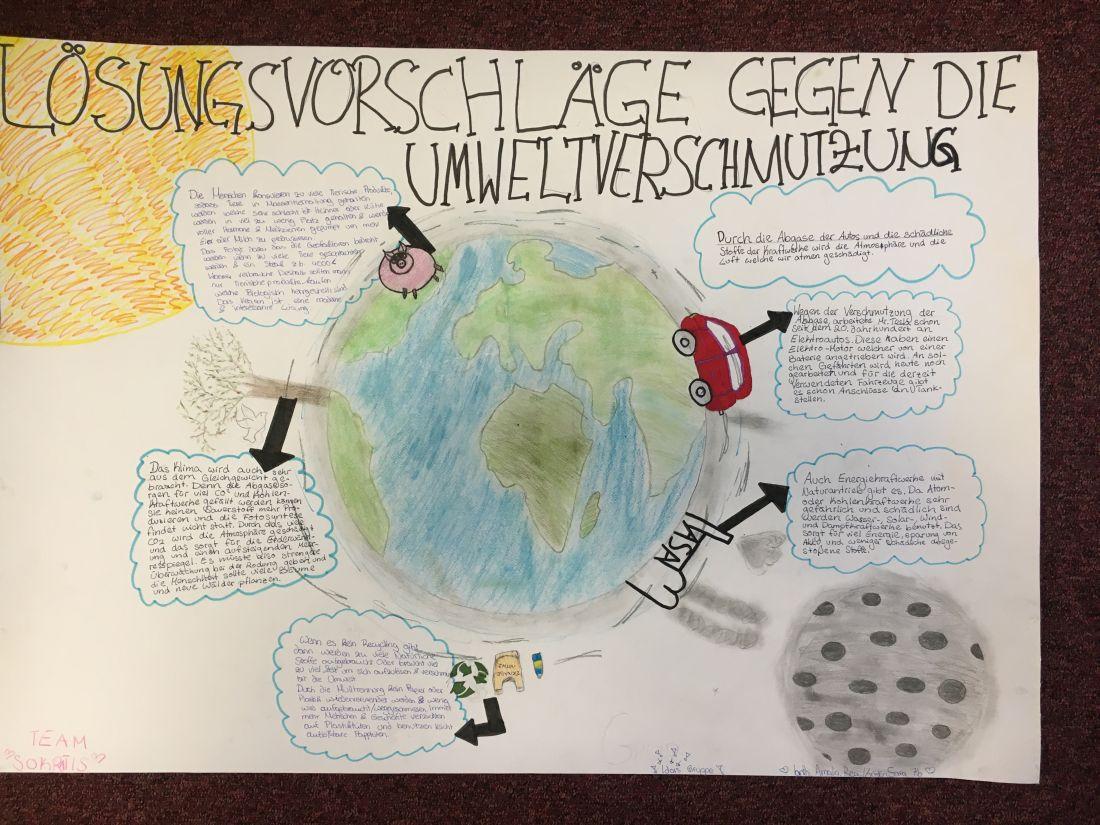 LÖSUNGSVORSCHLÄGE GEGEN DIE
UMWELTVERSCHMUTZUNG
Die Menschen konsumieren zu viele Tierische Produkte,
Tiere in Massentierhaltung gehalten
werden welche sehr schlecht ist. Hühner oder Kühe
werden in viel zu wenig Platz gehalten & werden
voller Hormone & Medizinen gefüttert um mehr
Eier oder Milch zu
Das
werden wenn zu viele Tiere
werden & ein Steak z.b. 4000l
Wasser verbraucht. Deshalb sollten man
nur Tierische produkte kaufen
welche Biologisch hergestellt sind.
Das ist eine moderne
& interesante Lösung
Durch die Abgase der Autos und die schädliche
Stoffe der Kraftwerke wird die Atmosphäre und die
Luft welche wir atmen geschädigt.
Wegen der Verschmutzung der
Abgase, arbeitete Mr. Tesla schon
seit dem 20. Jahrhundert an
Elektroautos. Diese haben einen
Elektro-Motor welcher von einer
Baterie angetrieben wird. An sol-
chen Gefährten wird heute noch
gearbeitet und für die derzeit
Verwendeten Fahrzeuge gibt
es schon Anschlüsse an Tank-
stellen.
Das Klima wird auch sehr
aus dem Gleichgewicht ge-
bracht. Denn die Abgase so-
rgen für viel CO² und Kohlen-
kraftwerke gefällt werden können
sie keinen Sauerstoff mehr Pro-
dunieren und die Fotosyntese
findet nicht statt. Durch das viele
CO2 wird die Atmosphäre geschädigt
und das sorgt für die Erderwärm-
ung und einen aufsteigenden Mee-
resspiegel. Es müsste also strengere
Überwachung bei der Rodung geben und
die Menschheit sollte viele Bäume
und neue Wälder pflanzen.
Auch Energiekraftwerke mit
Naturantrieb gibt es. Da Atom-
oder Kohlenkraftwerke sehr
gefährlich und schädlich sind
werden Wasser-, Solar-, Wind-
und Dampfkraftwerke benutzt. Das
sorgt für viel Energie, eparung von
Akku und weniger schädliche ausge-
stoßene Stoffe.
Wenn es kein Recycling gibt,
dann werden zu viele Natürliche
Stoffe aufgebraucht. Oder braucht viel
zu viel Zeit um sich aufzulösen & verschmutzt
die Umwelt
Durch die Mülltrennung kann Papier oder
Plastik wiederverwendet werden & wenig
wird aufgebraucht/weggeschmissen. Immer
mehr Menschen & Geschäfte verzichten
auf Plastiktüten und benutzen leicht
auflösbare Papptüten.
TEAM
SOKRATIS
Gruppe